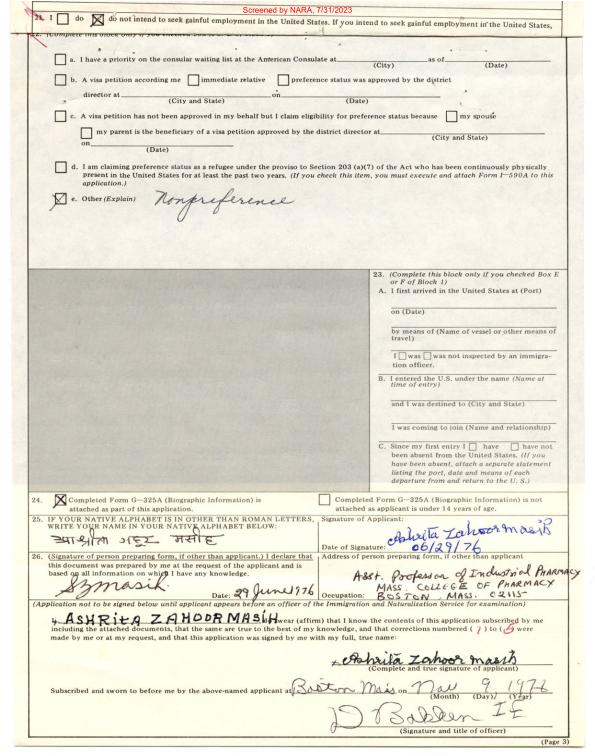 Screened by NARA, 7/31/2023
21. I do do not intend to seek gainful employment in the United States. If you intend to seek gainful employment in the United States,
22. (Complete this block only if you checked
a. I have a priority on the consular waiting list at the American Consulate at as of
(City) (Date)
b. A visa petition according me immediate relative preference status was approved by the district
director at on
(City and State) (Date)
c. A visa petition has not been approved in my behalf but I claim eligibility for preference status because my spouse
my parent is the beneficiary of a visa petition approved by the district director at
(City and State)
on
(Date)
d. I am claiming preference status as a refugee under the proviso to Section 203 (a)(7) of the Act who has been continuously physically
present in the United States for at least the past two years. (If you check this item, you must execute and attach Form I-590A to this
application.)
e. Other (Explain) Nonpreference
23. (Complete this block only if you checked Box E
or F of Block 1)
A. I first arrived in the United States at (Port)
on (Date)
by means of (Name of vessel or other means of
travel)
I was was not inspected by an immigra-
tion officer.
B. I entered the U.S. under the name (Name at
time of entry)
and I was destined to (City and State)
I was coming to join (Name and relationship)
C. Since my first entry I have have not
been absent from the United States. (If you
have been absent, attach a separate statement
listing the port, date and means of each
departure from and return to the U. S.)
24. Completed Form G-325A (Biographic Information) is
attached as part of this application.
Completed Form G-325A (Biographic Information) is not
attached as applicant is under 14 years of age.
25. IF YOUR NATIVE ALPHABET IS IN OTHER THAN ROMAN LETTERS,
WRITE YOUR NAME IN YOUR NATIVE ALPHABET BELOW:
मसीह
Signature of Applicant:
Ashrita Zahoor Masih
Date of Signature: 06/29/76
26. (Signature of person preparing form, if other than applicant.) I declare that
this document was prepared by me at the request of the applicant and is
based on all information on which I have any knowledge.
SZMasih. Date: 29 June 1976
Address of person preparing form, if other than applicant
Asst. Professor of Industrial PHARMACY
MASS. COLLEGE OF PHARMACY
Occupation: BOSTON, MASS. 02115
(Application not to be signed below until applicant appears before an officer of the Immigration and Naturalization Service for examination)
I, ASHRITA ZAHOOR MASIH swear (affirm) that I know the contents of this application subscribed by me
including the attached documents, that the same are true to the best of my knowledge, and that corrections numbered ( 1 ) to ( ) were
made by me or at my request, and that this application was signed by me with my full, true name:
x Ashrita Zahoor Masih
(Complete and true signature of applicant)
Subscribed and sworn to before me by the above-named applicant at Boston Mass on Nov 9 1976
(Month) (Day) (Year)
(Signature and title of officer)
(Page 3)